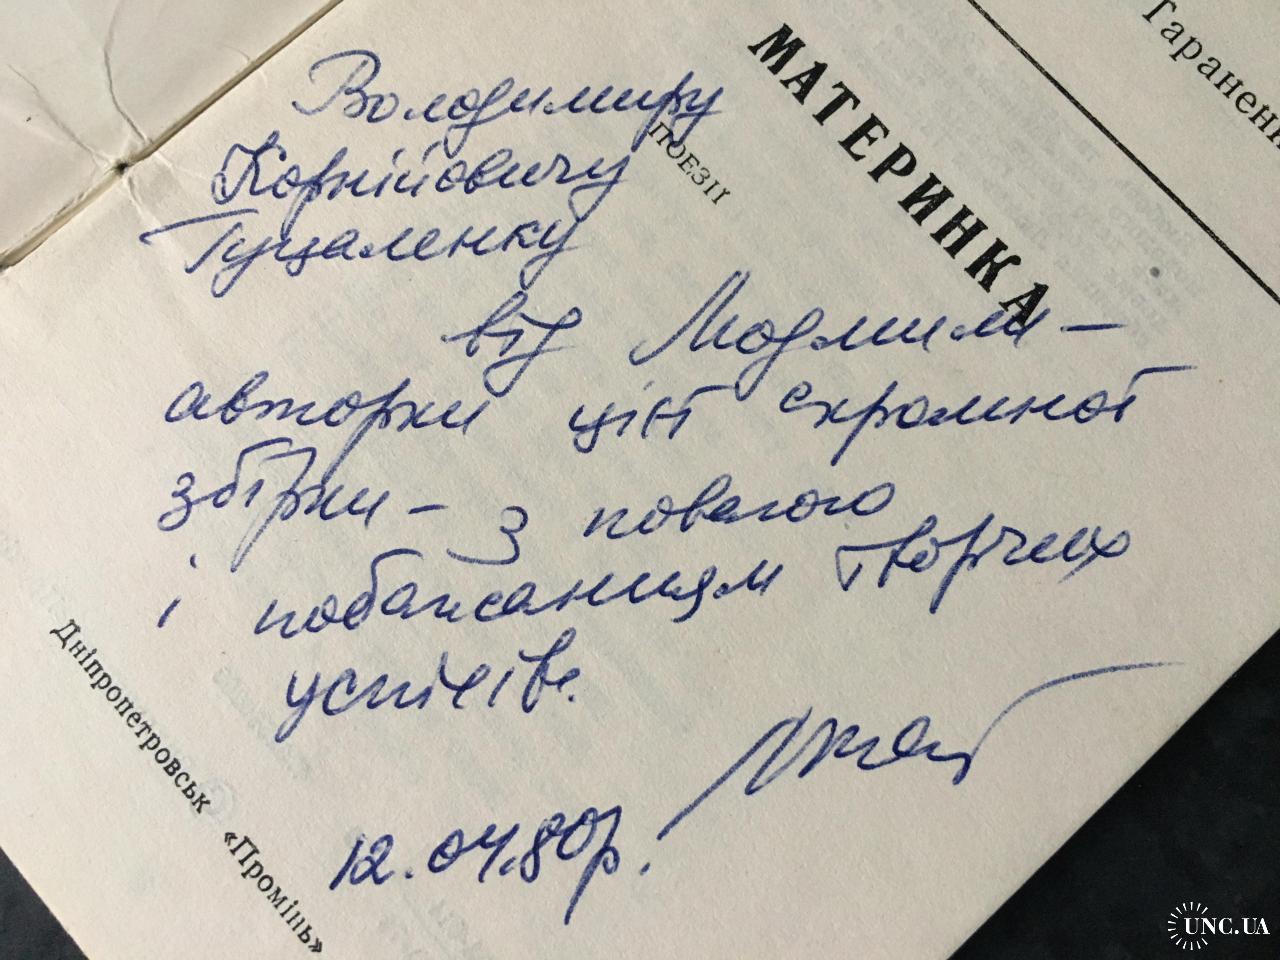 Гаранен
МАТЕРИНКА
ПОЕЗІЇ
Володимиру
Корнійовичу
Гуцаленку
від Людмили –
авторки цієї скромної
збірки – з повагою
і побажанням творчих
успіхів.
12.04.80р.
Дніпропетровськ «Промінь»
UNC.UA